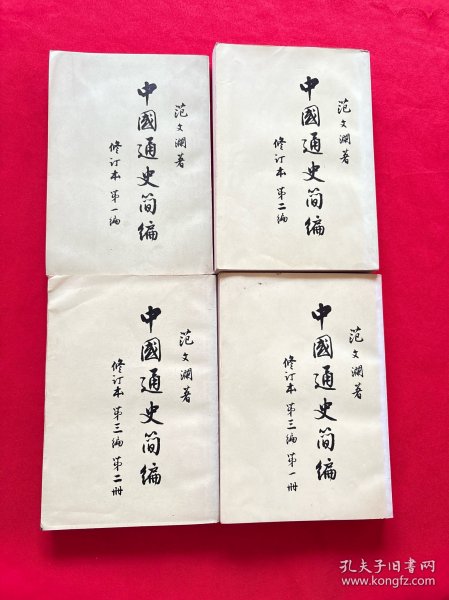 范文澜著
中國通史简编
修订本 第一编
范文澜著
中國通史简编
修订本 第二编
范文澜著
中國通史简编
修订本 第三编 第二册
范文澜著
中國通史简编
修订本 第三编 第一册
孔夫子旧书网
www.kongfz.com